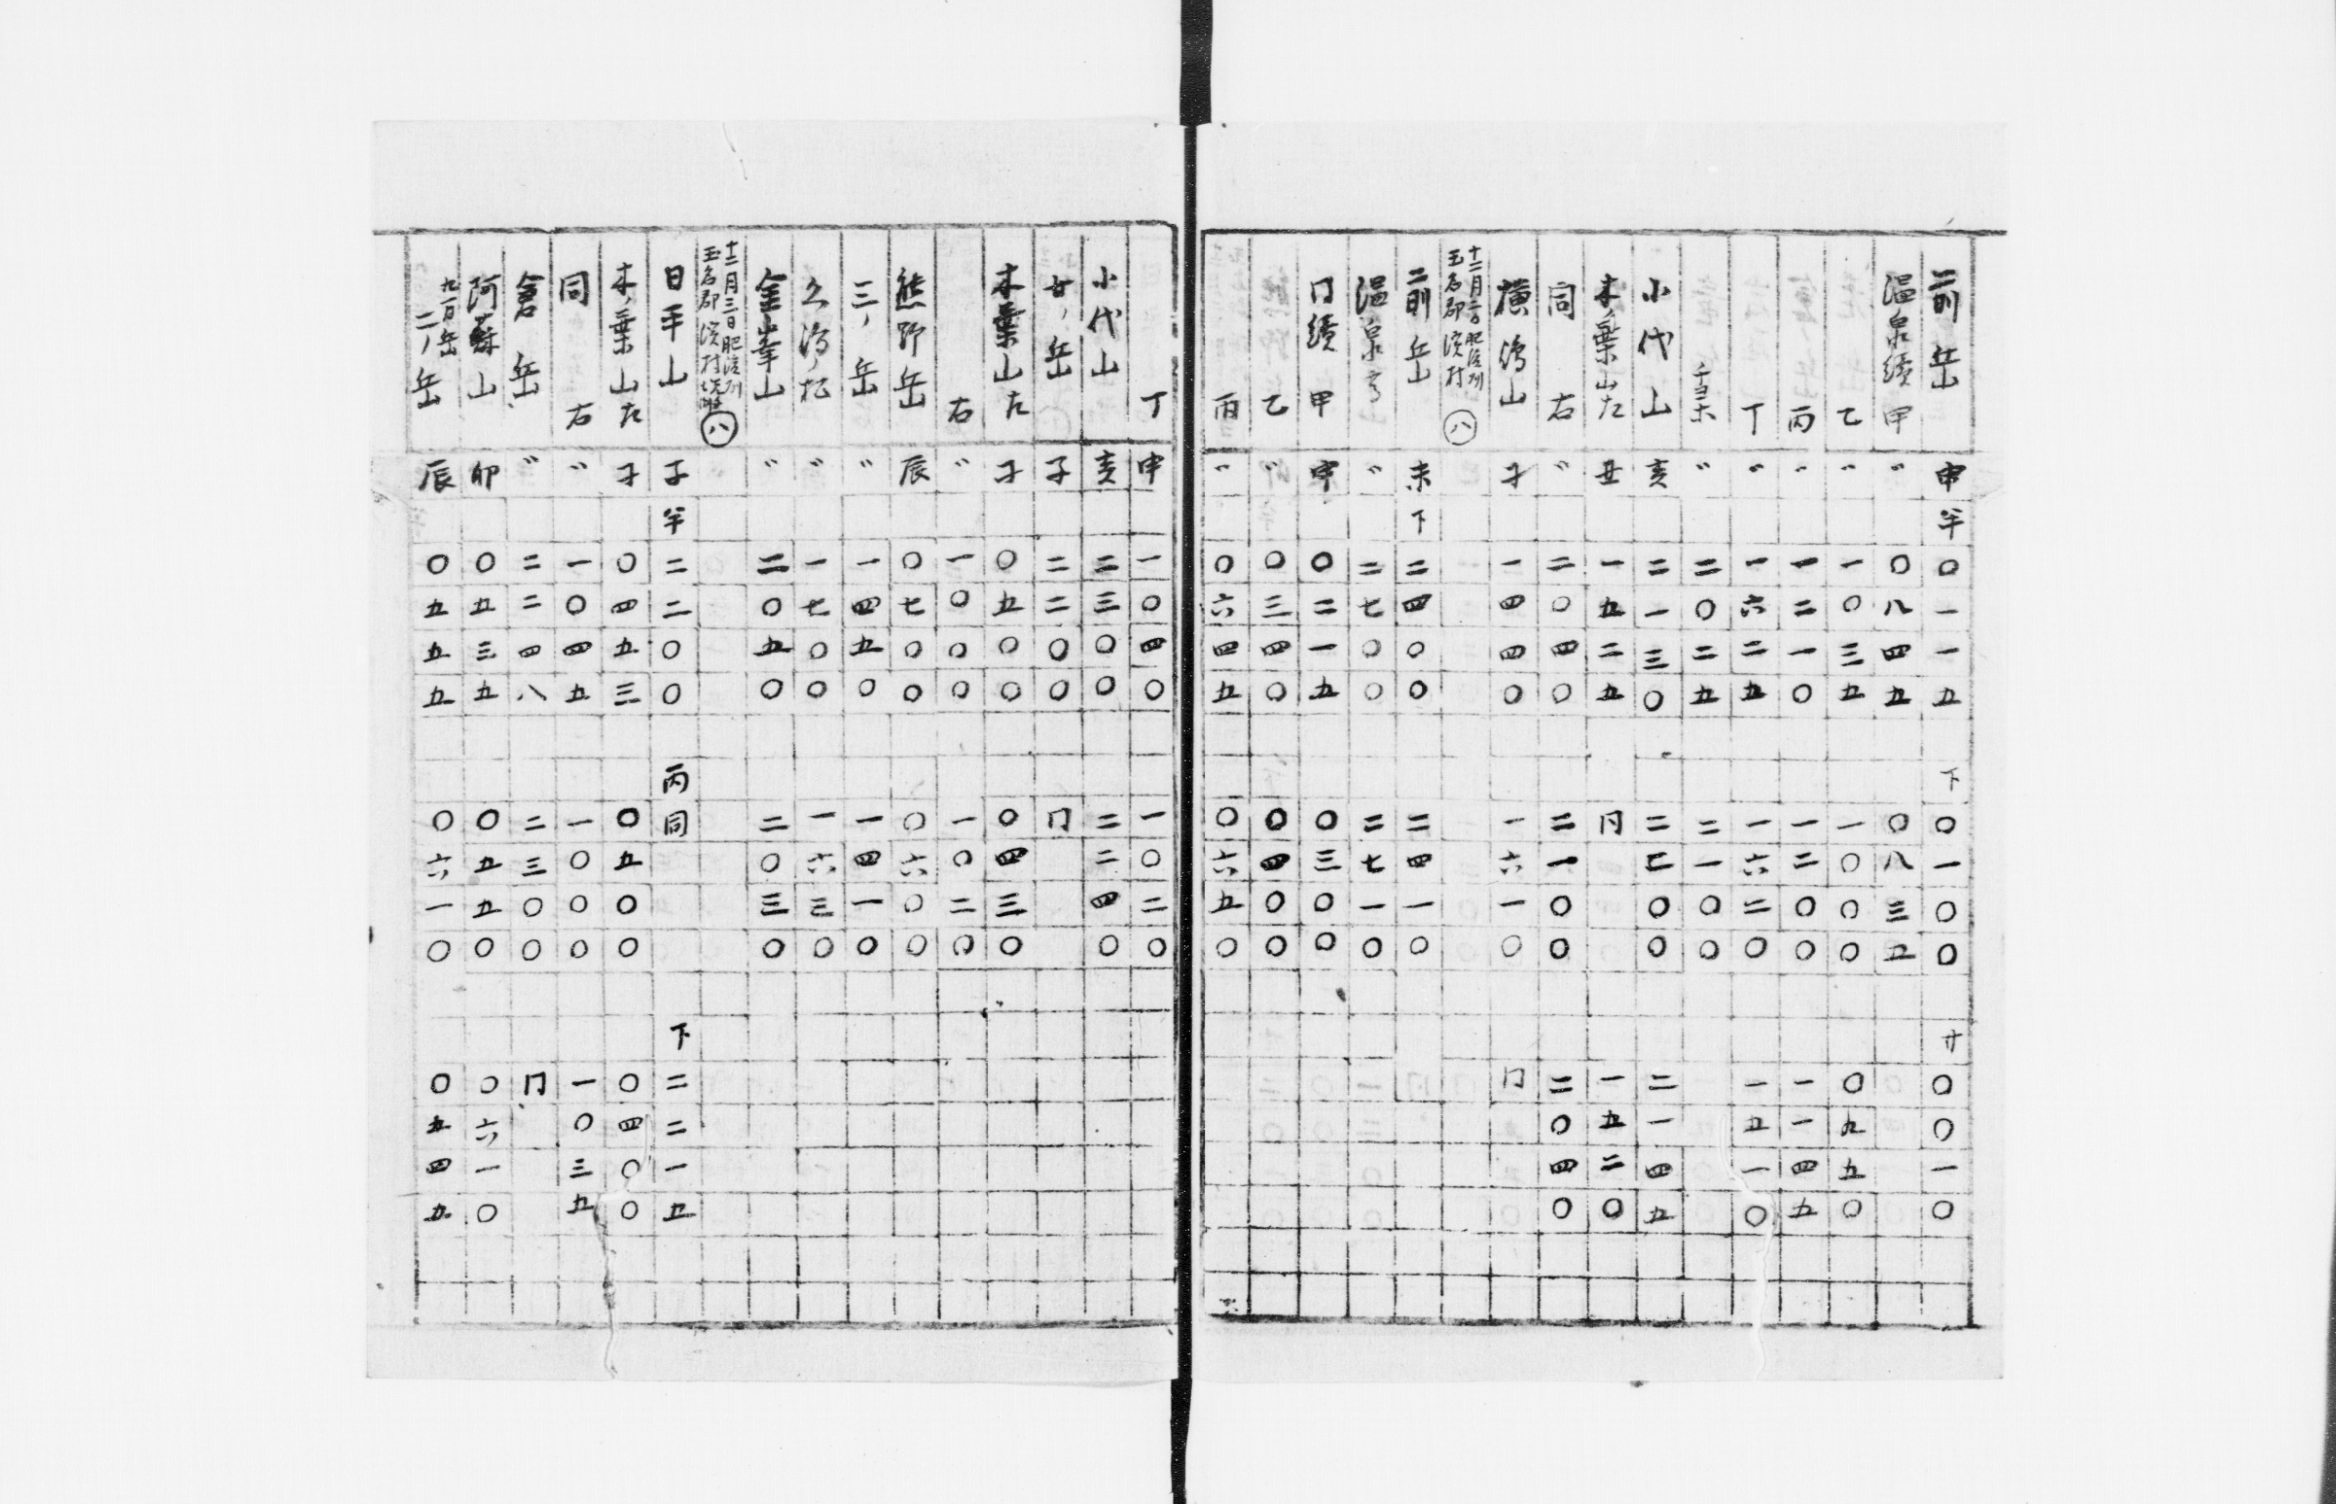 前岳 申 半 〇一一五 下 〇一〇〇 廿 〇〇一〇
温泉續 甲 〃 〇八四五 〇八三五
乙 〃 一〇三五 一〇〇〇 〇九五〇
丙 〃 一二一〇 一二〇〇 一一四五
丁 〃 一六二五 一六二〇 一五一〇
〃 二〇二五 二一〇〇
小代山 亥 二一三〇 二二〇〇 二一四五
木ノ葉山左 丑 一五二五 同 一五二〇
同 右 〃 二〇四〇 二一〇〇 二〇四〇
横嶋山 子 一四四〇 一六一〇 同
十二月二日肥後州
玉名郡濱村 八
前岳 未 下 二四〇〇 二四一〇
温泉 〃 二七〇〇 二七一〇
同續 甲 申 〇二一五 〇三〇〇
乙 〃 〇三四〇 〇四〇〇
丙 〃 〇六四五 〇六五〇
丁 申 一〇四〇 一〇二〇
小代山 亥 二三〇〇 二二四〇
女ノ岳 子 二二〇〇 同
木葉山左 子 〇五〇〇 〇四三〇
右 〃 一〇〇〇 一〇二〇
熊野岳 辰 〇七〇〇 〇六〇〇
三ノ岳 〃 一四五〇 一四一〇
一七〇〇 一六三〇
金峯山 〃 二〇五〇 二〇三〇
十二月三日肥後州
玉名郡濱村 八
日平山 子 半 二二〇〇 丙 同 下 二二一五
木ノ葉山左 子 〇四五三 〇五〇〇 〇四〇〇
同 右 〃 一〇四五 一〇〇〇 一〇三五
倉岳 〃 二二四八 二三〇〇 同
阿蘇山 卯 〇五三五 〇五五〇 〇六一〇
二ノ岳 辰 〇五五五 〇六一〇 〇五四五